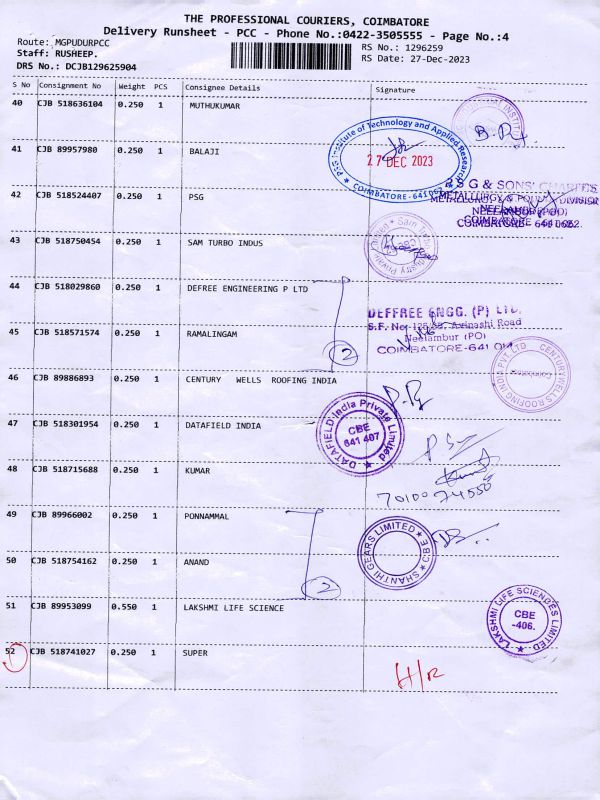 THE PROFESSIONAL COURIERS, COIMBATORE
Delivery Runsheet - PCC - Phone No.:0422-3505555 - Page No.:4
Route: MGPUDURPCC
RS No.: 1296259
Staff: RUSHEEP.
RS Date: 27-Dec-2023
DRS No.: DCJB129625904
S No Consignment No Weight PCS Consignee Details Signature
40 CJB 518636104 0.250 1 MUTHUKUMAR
41 CJB 89957980 0.250 1 BALAJI
PSG Institute of Technology and Applied Research
27 DEC 2023
COIMBATORE - 641 062
42 CJB 518524407 0.250 1 PSG
P S G & SONS' CHARITIES
METALLURGY & FOUNDRY DIVISION
NEELAMBUR (PO)
COIMBATORE - 641 062.
43 CJB 518750454 0.250 1 SAM TURBO INDUS
Sam Turbo Industry Private Limited
44 CJB 518029860 0.250 1 DEFREE ENGINEERING P LTD
DEFFREE ENGG. (P) LTD.
S.F. No: Avinashi Road
Neelambur (PO)
COIMBATORE-641 014
45 CJB 518571574 0.250 1 RAMALINGAM
2
46 CJB 89886893 0.250 1 CENTURY WELLS ROOFING INDIA
CENTURY WELLS ROOFING INDIA PVT. LTD
Coimbatore
47 CJB 518301954 0.250 1 DATAFIELD INDIA
DATAFIELD India Private Limited
CBE
641 407
48 CJB 518715688 0.250 1 KUMAR
49 CJB 89966002 0.250 1 PONNAMMAL
SHANTHI GEARS LIMITED
CBE
50 CJB 518754162 0.250 1 ANAND
2
51 CJB 89953099 0.550 1 LAKSHMI LIFE SCIENCE
LAKSHMI LIFE SCIENCES LIMITED
CBE
-406.
52 CJB 518741027 0.250 1 SUPER
H/R